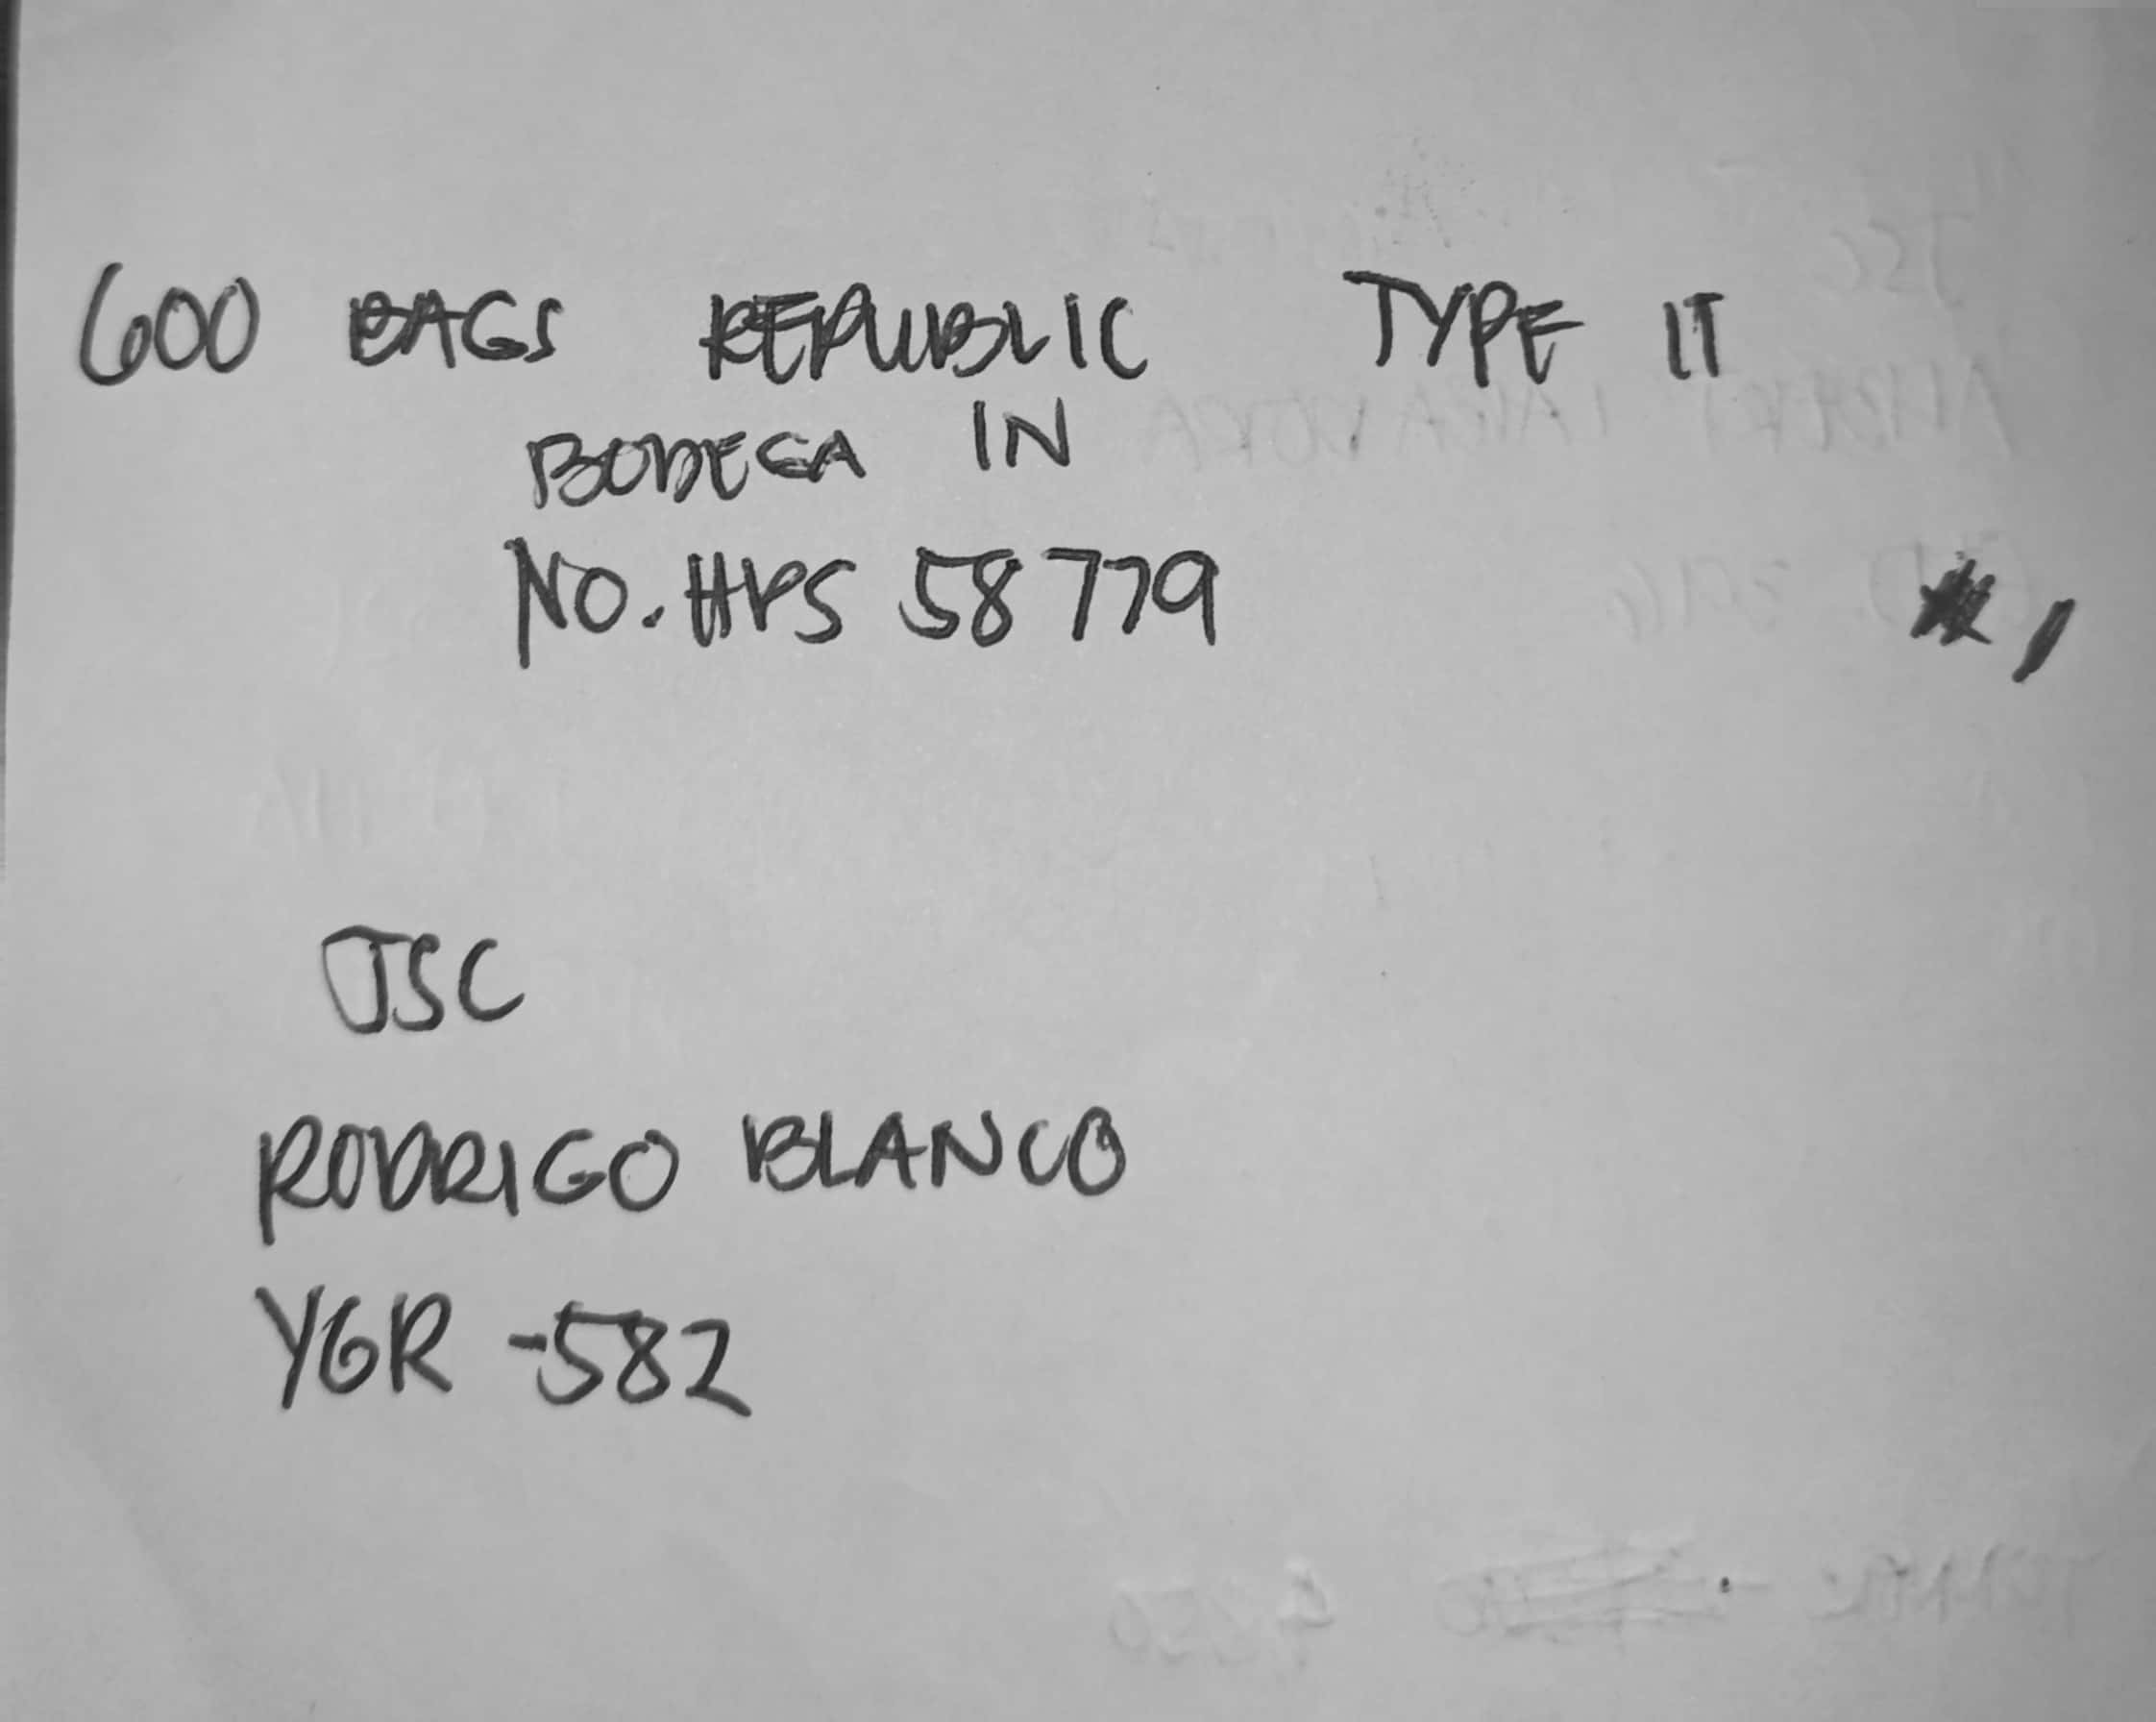 600 BAGS REPUBLIC TYPE IT
BODEGA IN
NO. HPS 58779
JSC
RODRIGO BLANCO
YGR -582